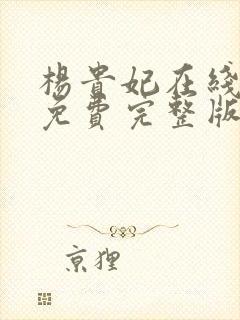 楊貴妃在綫
免費完整版
京狸